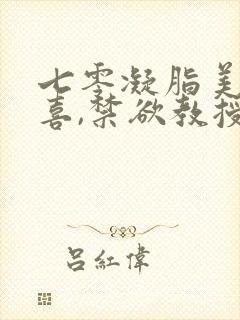 七零凝脂美
喜,禁欲教授
吕紅偉